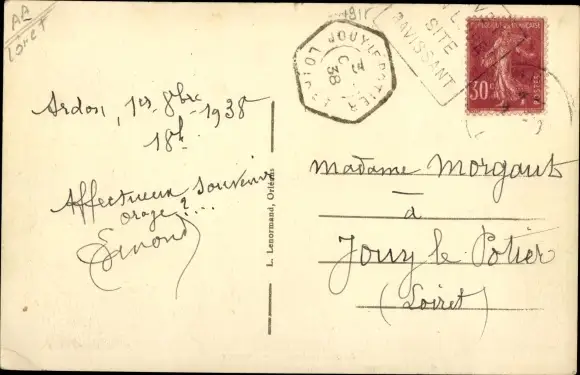 AA
Loiret
Ardon, 1er 8bre 1938
18h
Affectueux souvenir
orage ?....
L. Lenormand, Orléans
JOUY-LE-POTIER LOIRET
38
SITE
RAVISSANT
30c
Madame Morgaut
à
Jouy le Potier
(Loiret)